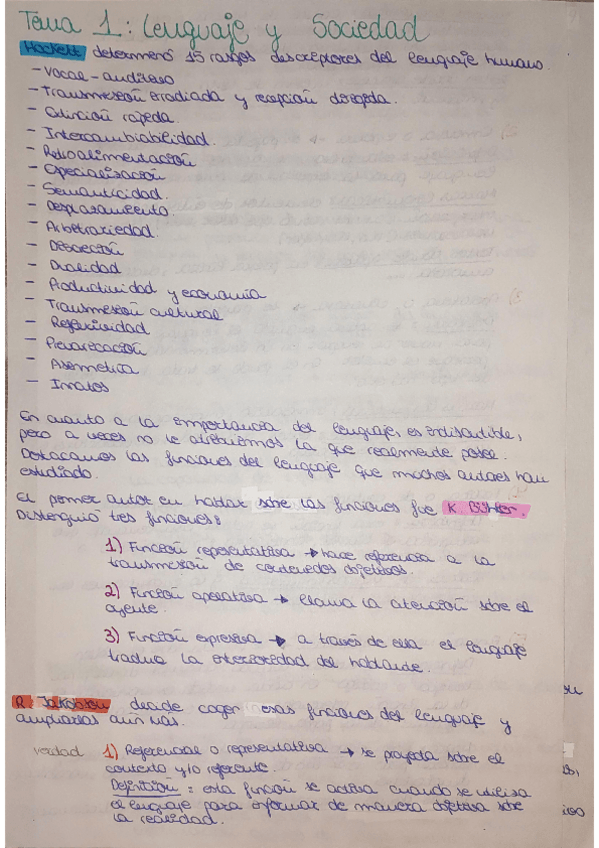 Tema 1: Lenguaje y Sociedad
Hockett determinó 15 rasgos descriptores del lenguaje humano.
- Vocal - auditivo
- Transmisión irradiada y recepción dirigida.
- Extinción rápida.
- Intercambiabilidad.
- Retroalimentación
- Especialización
- Semanticidad.
- Desplazamiento.
- Arbitrariedad.
- Discreción
- Dualidad
- Productividad y economía
- Transmisión cultural
- Reflexividad
- Prevaricación
- Asimetría
- Innatos
En cuanto a la importancia del lenguaje, es indiscutible,
pero a veces no le atribuimos la que realmente posee.
Destacamos las funciones del lenguaje que muchos autores han
estudiado.
El primer autor en hablar sobre las funciones fue K. Bühler.
Distinguió tres funciones:
1) Función representativa → hace referencia a la
transmisión de contenidos objetivos.
2) Función apelativa → llama la atención sobre el
oyente.
3) Función expresiva → a través de ella el lenguaje
traduce la interioridad del hablante.
R. Jakobson decide coger esas funciones del lenguaje y
ampliarlas aún más.
verdad 1) Referencial o representativa → se proyecta sobre el
contexto y/o referente.
Definition: esta función se activa cuando se utiliza
el lenguaje para informar de manera objetiva sobre
la realidad.